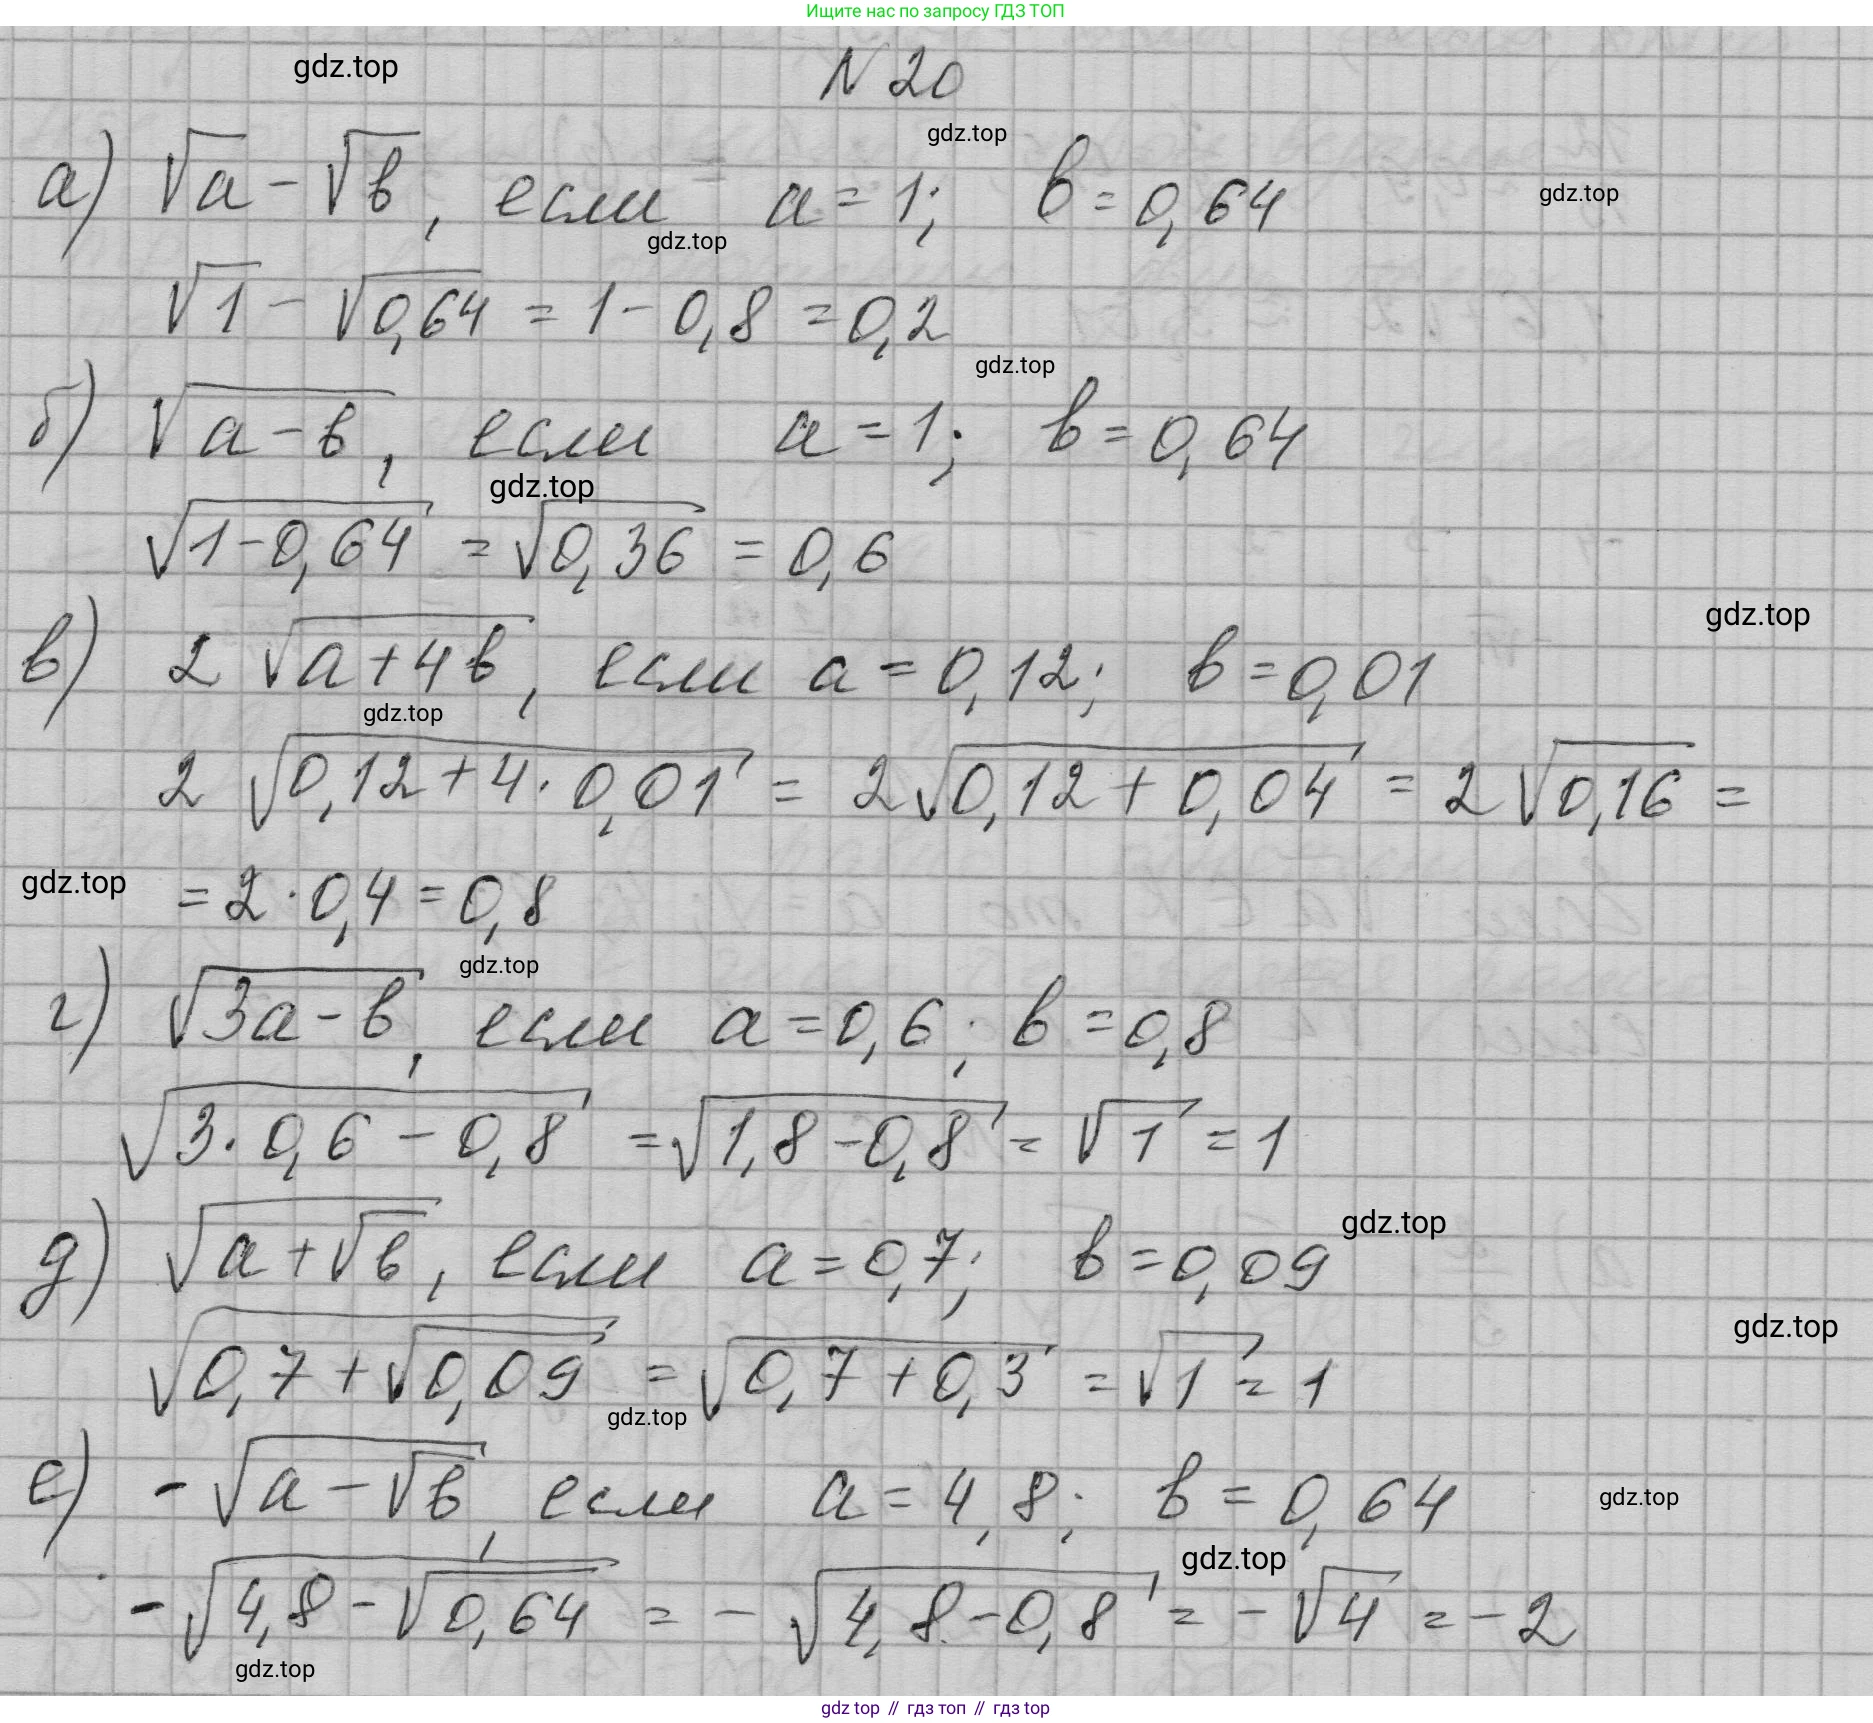 Ищите нас по запросу ГДЗ ТОП
gdz.top
N 20
gdz.top
а) √a - √b, если a = 1; b = 0,64
gdz.top
gdz.top
√1 - √0,64 = 1 - 0,8 = 0,2
gdz.top
б) √(a - b), если a = 1; b = 0,64
gdz.top
√(1 - 0,64) = √0,36 = 0,6
gdz.top
в) 2 √(a + 4b), если a = 0,12; b = 0,01
gdz.top
2 √(0,12 + 4 · 0,01) = 2√(0,12 + 0,04) = 2√0,16 =
gdz.top
= 2 · 0,4 = 0,8
gdz.top
г) √(3a - b), если a = 0,6; b = 0,8
√(3 · 0,6 - 0,8) = √(1,8 - 0,8) = √1 = 1
gdz.top
д) √(a + √b), если a = 0,7; b = 0,09
gdz.top
√(0,7 + √0,09) = √(0,7 + 0,3) = √1 = 1
gdz.top
е) -√(a - √b), если a = 4,8; b = 0,64
gdz.top
gdz.top
-√(4,8 - √0,64) = -√(4,8 - 0,8) = -√4 = -2
gdz.top
gdz top // гдз топ // гдз top